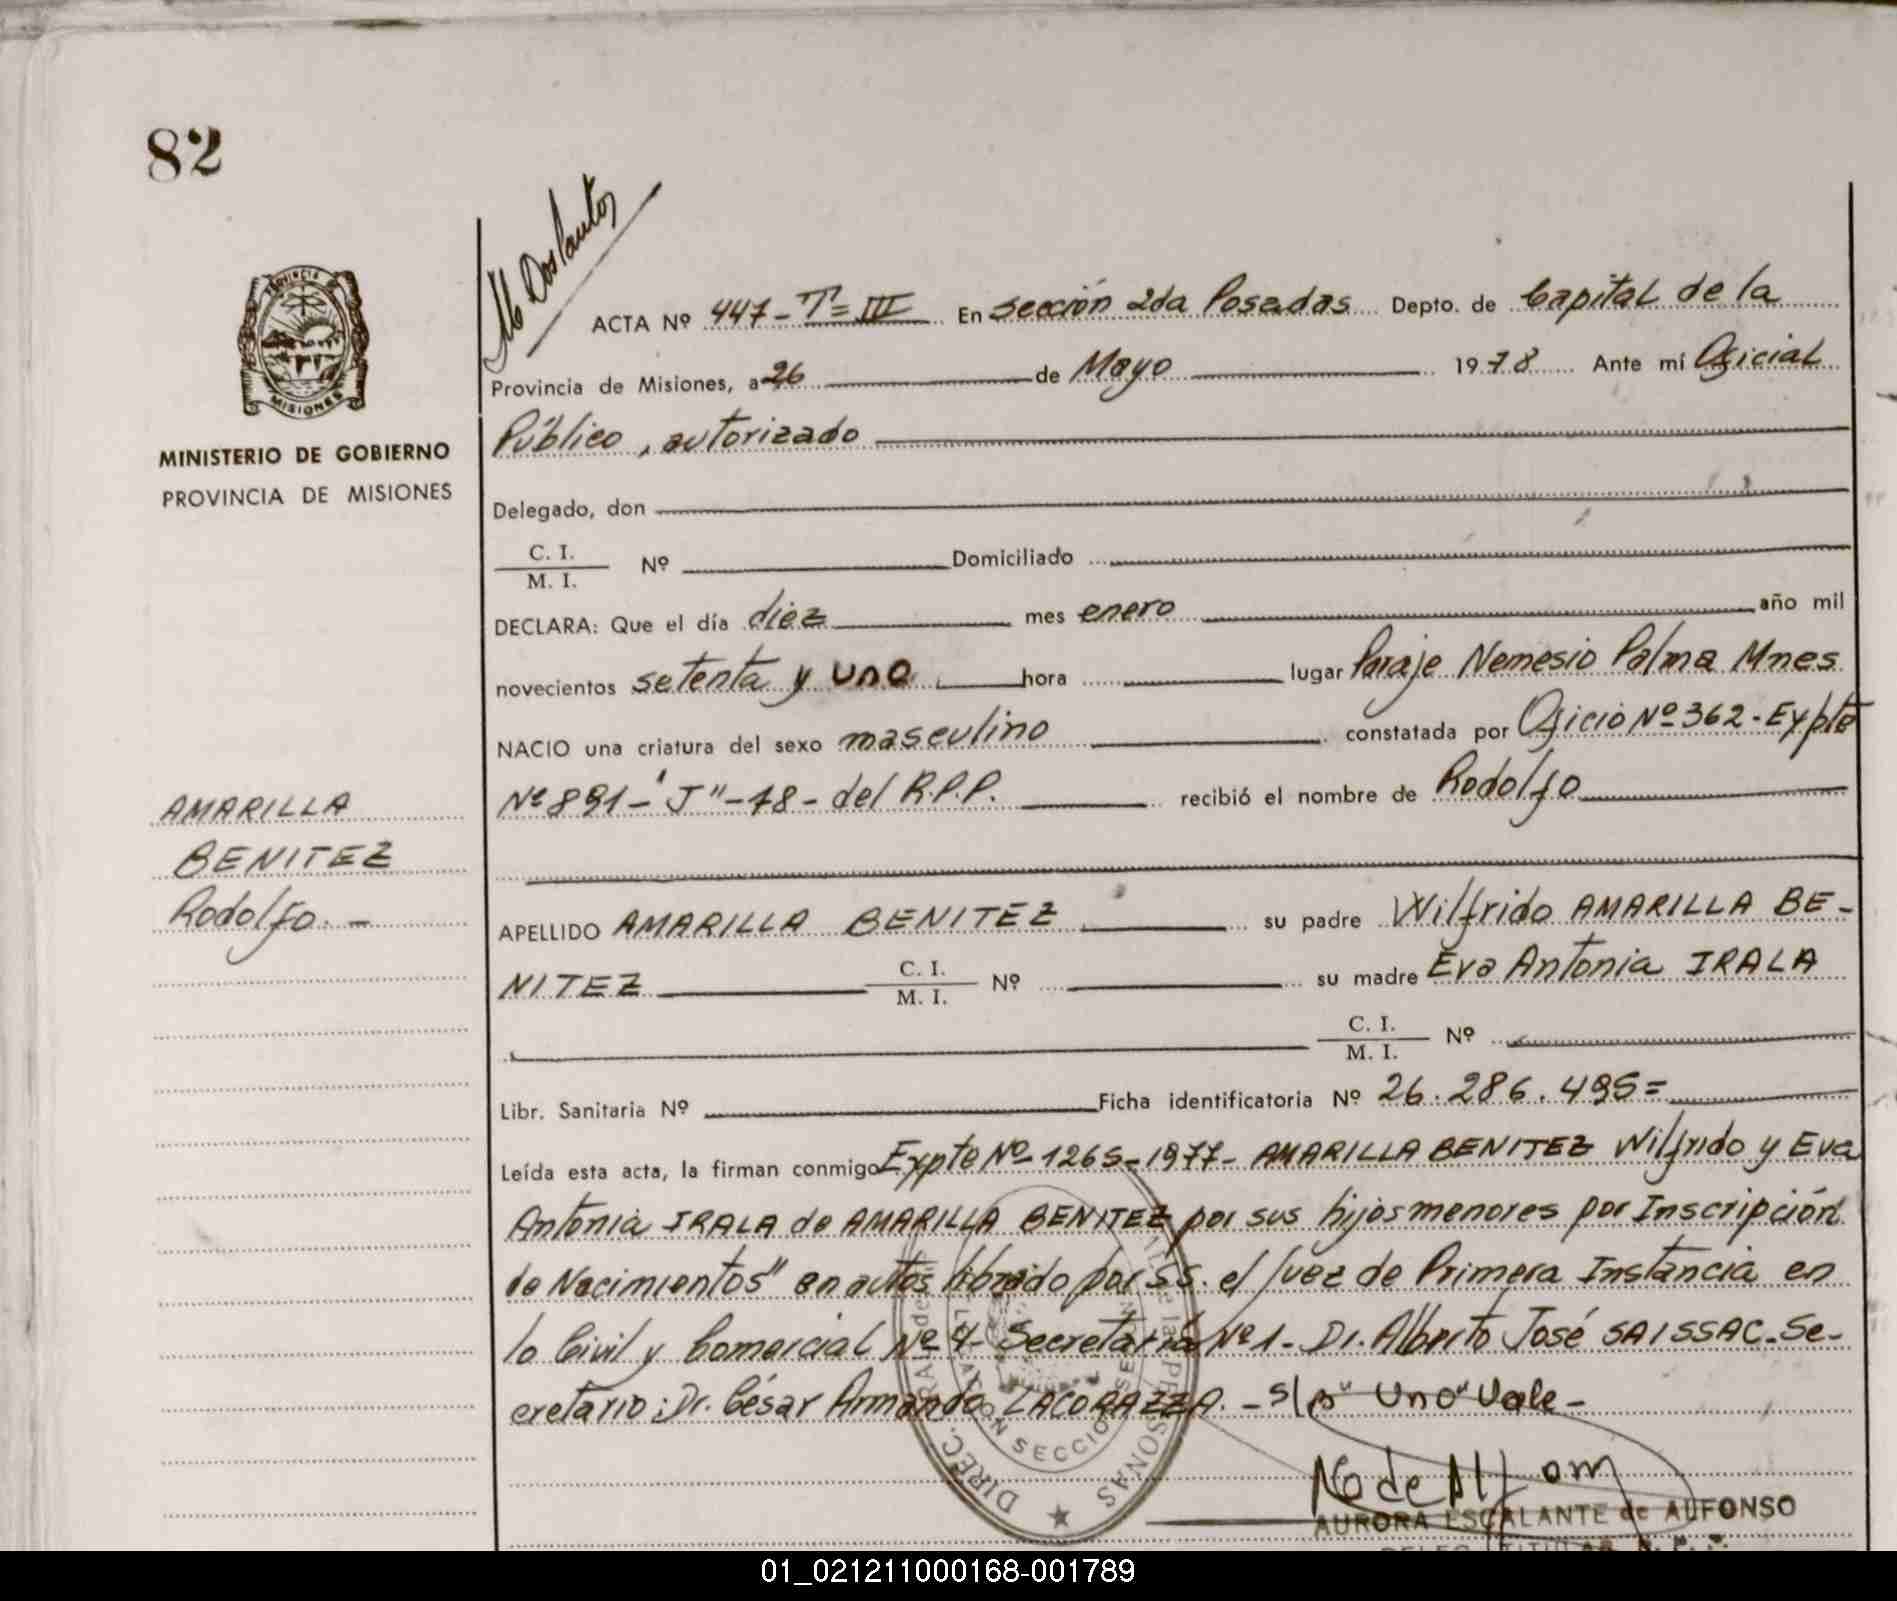 82
M Dos Santos
ACTA Nº 447-T=III En Sección 2da Posadas Depto. de Capital de la
Provincia de Misiones, a 26 de Mayo 1978 Ante mí Oficial
Público, autorizado
PROVINCIA DE
MISIONES
MINISTERIO DE GOBIERNO
PROVINCIA DE MISIONES
Delegado, don
C. I.
M. I. Nº Domiciliado
DECLARA: Que el día diez mes enero año mil
novecientos setenta y uno hora lugar Paraje Nemesio Palma Mnes
NACIO una criatura del sexo masculino constatada por Oficio Nº 362-Expte
Nº 891-"J"-78- del R.P.P. recibió el nombre de Rodolfo
AMARILLA
BENITEZ
Rodolfo.-
APELLIDO AMARILLA BENITEZ su padre Wilfrido AMARILLA BE-
NITEZ C. I.
M. I. Nº su madre Eva Antonia IRALA
C. I.
M. I. Nº
Libr. Sanitaria Nº Ficha identificatoria Nº 26.286.495=
Leída esta acta, la firman conmigo Expte Nº 1265-1977- AMARILLA BENITEZ Wilfrido y Eva
Antonia IRALA de AMARILLA BENITEZ por sus hijos menores por Inscripción
de Nacimientos" en autos librado por S.S. el Juez de Primera Instancia en
lo Civil y Comercial Nº 4- Secretaría Nº 1- Dr. Alberto José SAISSAC-Se-
cretario: Dr. César Armando LACORAZZA.-S/B "Uno" Vale-
DIREC. GRAL de las PERSONAS
SECCION
AURORA ESCALANTE de ALFONSO
01_021211000168-001789